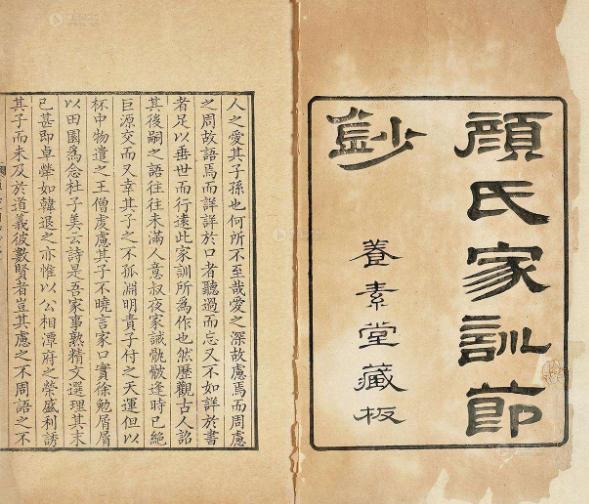 顏氏家訓節
鈔
養素堂藏板
人之愛其子孫也何所不至哉愛之深故慮焉而周慮
之周故語焉而詳詳於口者聽過而忘又不如詳於書
者足以垂世而行遠此家訓所爲作也然歷觀古人詔
其後嗣之語往往未滿人意叔夜家誡骫骳逢時已絕
巨源交而又幸其子之不孤淵明責子付之天運但以
杯中物遣之王僧虔慮其子不曉言家口實徐勉屑屑
以田園爲念杜子美云詩是吾家事熟精文選理其末
已甚即卓犖如韓退之亦惟以公相潭府之榮盛利誘
其子而未及於道義彼數賢者豈其慮之不周語之不